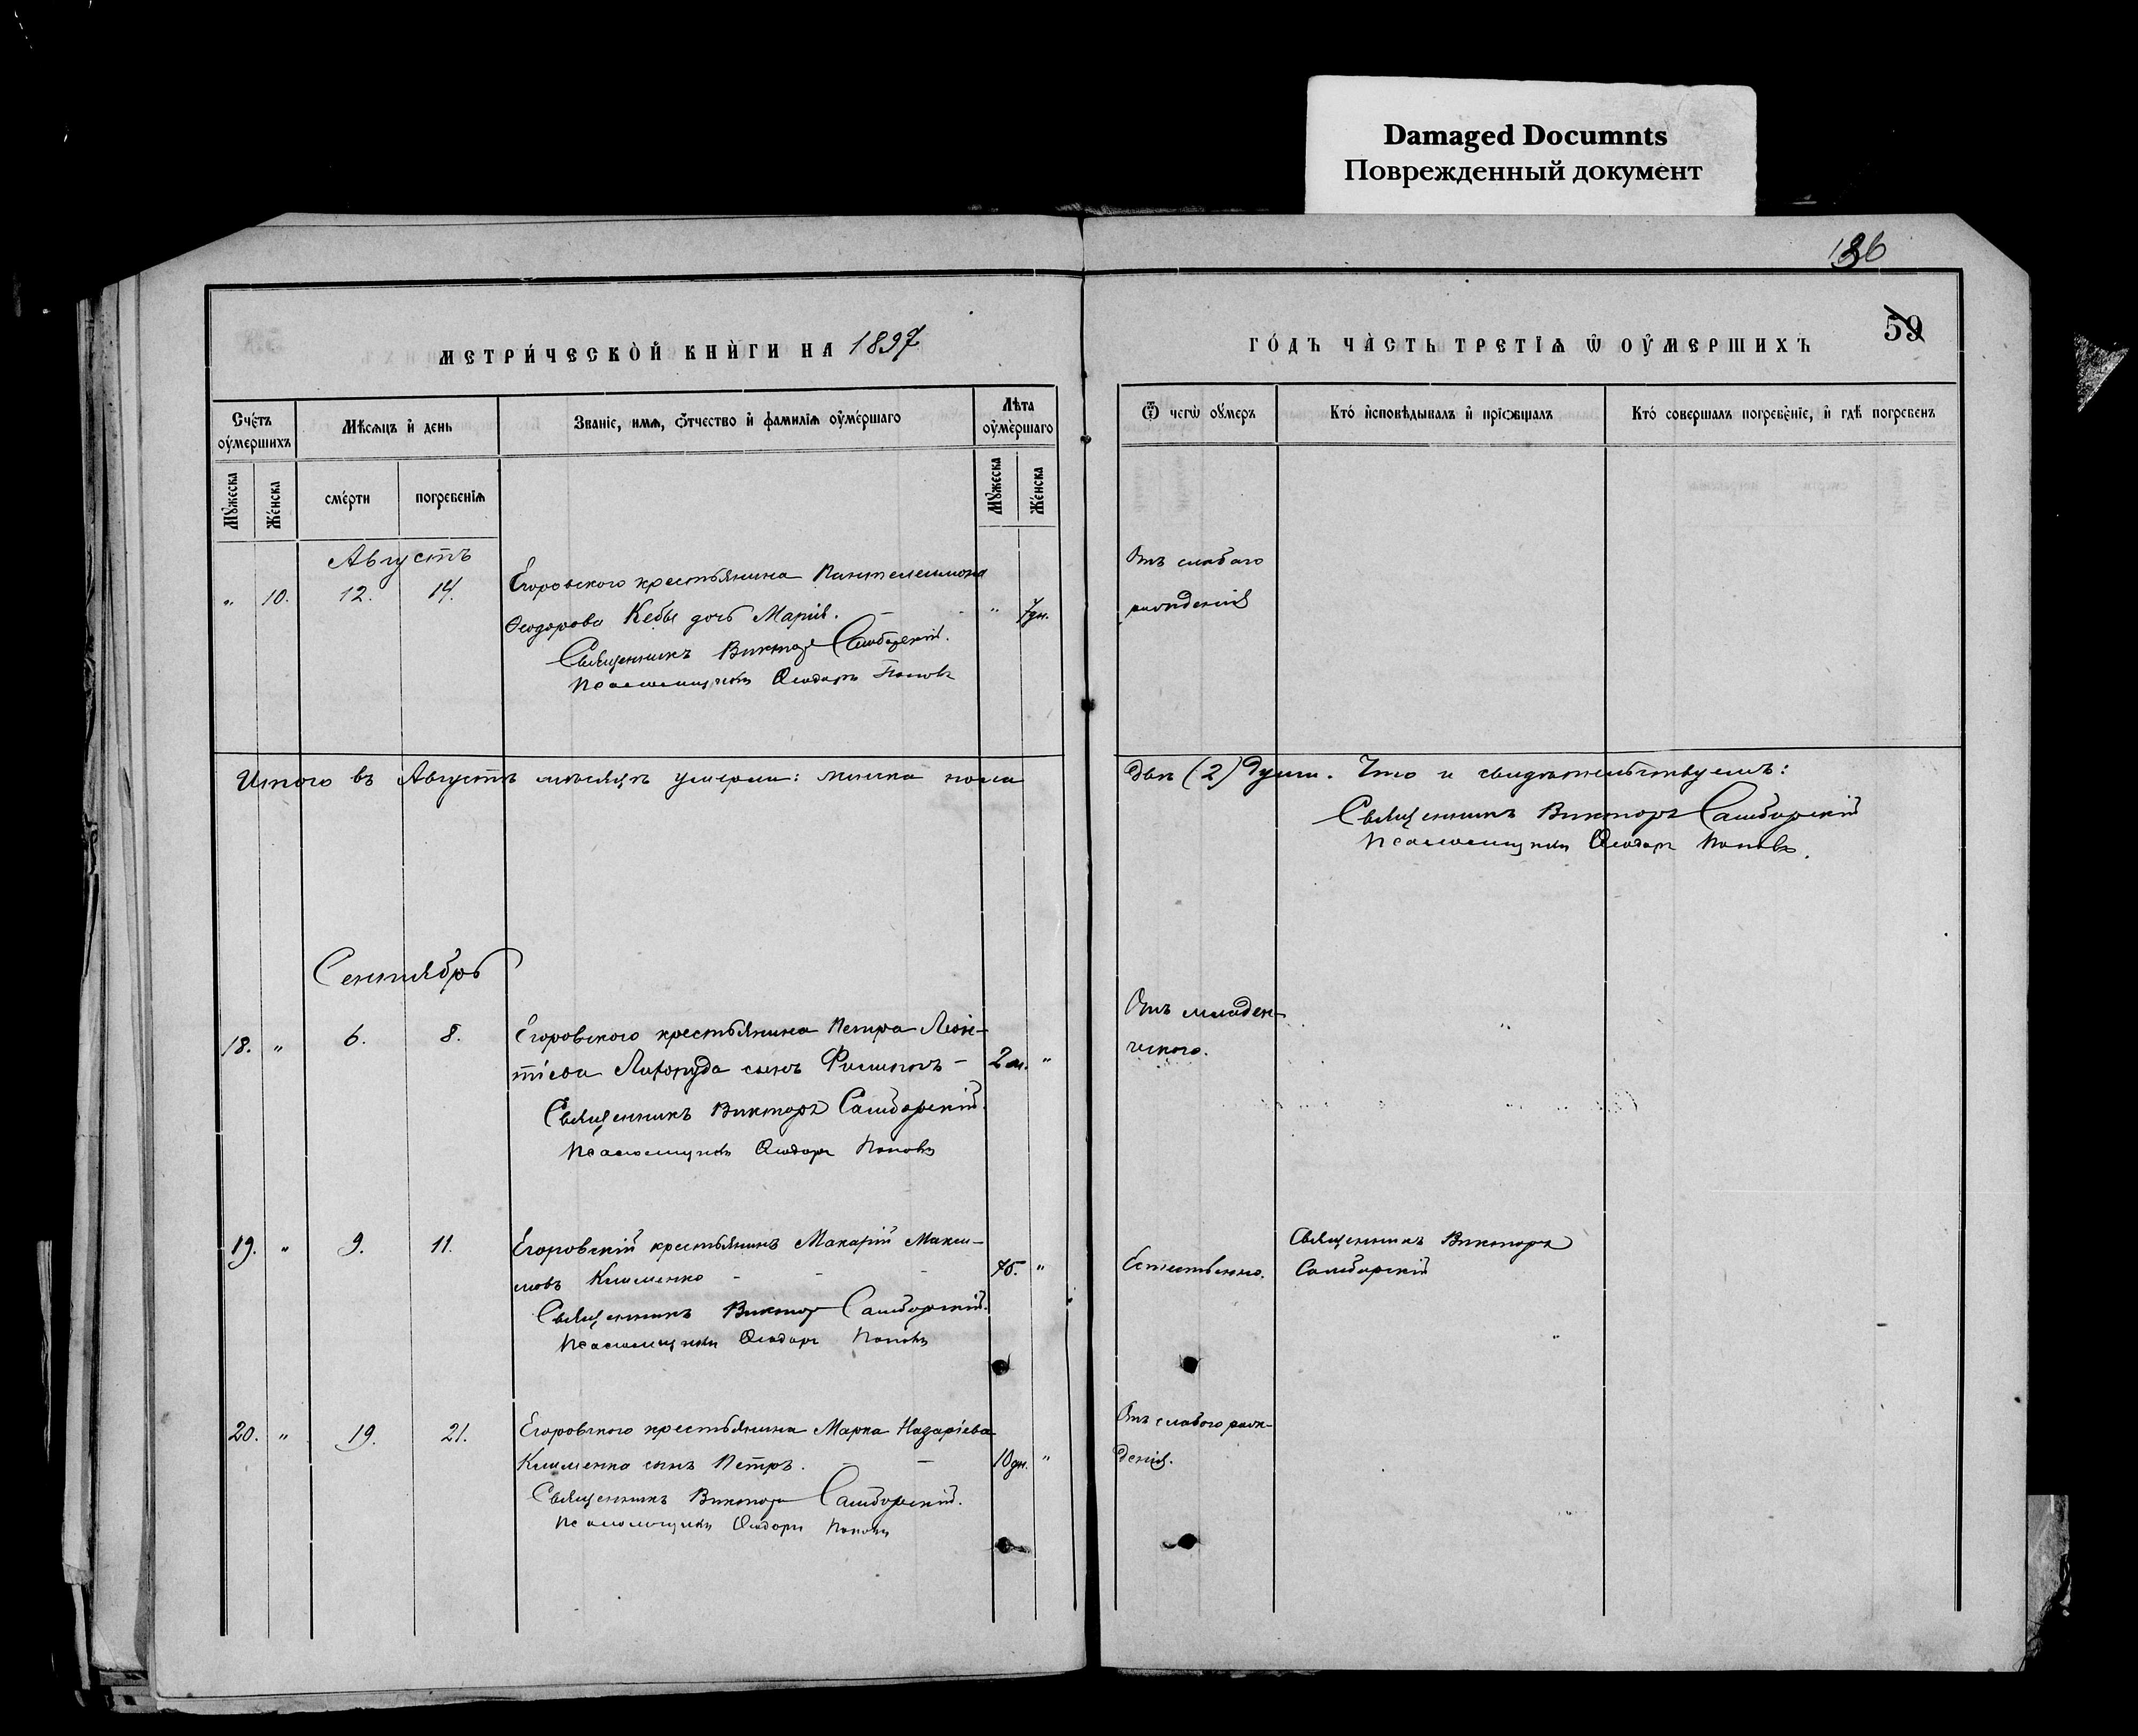 Damaged Documnts
Поврежденный документ
136
59
МЕТРИ́ЧЕСКОЙ КНИ́ГИ НА 1897
ГО́ДЪ ЧА́СТЬ ТРЕТІѦ Ѿ ОУ҆МЕРШИХЪ
Сче́тъ оу҆ме́ршихъ
Мѣ́сѧцъ и҆ день
Зва́нїе, имѧ, ѻ҆́тчество и҆ фами́лїѧ оу҆ме́ршаго
Лѣ́та оу҆ме́ршаго
Ѿ чегѡ̀ оу҆́меръ
Кто̀ и҆сповѣ́дывалъ и҆ прїѡбща́лъ
Кто̀ соверша́лъ погребе́нїе, и҆ гдѣ̀ погребе́нъ
Мꙋ́жеска
Же́нска
сме́рти
погребе́нїѧ
Мꙋ́жеска
Же́нска
Августъ
" 10. 12. 14. Егоровского крестьянина Пантелеимона
Ѳеодорова Кебы дочь Марія. " 7дн.
Священникъ Викторъ Самборскій.
Псаломщикъ Ѳеодоръ Поповъ
Отъ слабаго
рожденія
Итого въ Августѣ мѣсяцѣ умерли: женска пола
двѣ (2) души. Что и свидѣтельствуемъ:
Священникъ Викторъ Самборскій
Псаломщикъ Ѳеодоръ Поповъ.
Сентябрь
18. " 6. 8. Егоровского крестьянина Петра Леон-
тіева сынъ Филиппъ – 2 м. "
Священникъ Викторъ Самборскій.
Псаломщикъ Ѳеодоръ Поповъ
Отъ младен-
ческого.
19. " 9. 11. Егоровскій крестьянинъ Макарій Макси-
мовъ Клименко - - - 75. "
Священникъ Викторъ Самборскій.
Псаломщикъ Ѳеодоръ Поповъ
Естественно.
Священникъ Викторъ
Самборскій
20. " 19. 21. Егоровского крестьянина Марка Назаріева
Клименка сынъ Петръ. – – 10дн. "
Священникъ Викторъ Самборскій.
Псаломщикъ Ѳеодоръ Поповъ
Отъ слабого рож-
денія.